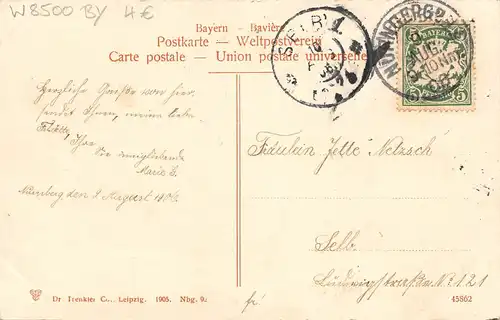 W8500 By 4 €
Bayern - Bavière
Postkarte - Weltpostverein
Carte postale - Union postale universelle
SELB
NÜRNBERG
BAYERN
5 5
Herzliche Grüße von hier
sendet Ihnen, meine liebe
Ihre
Sie
Marie
Nürnberg den 2 August 1906.
Fräulein Jette Netzsch
Selb.
Ludwigstraße No 121
Leipzig. 1905. Nbg. 9.
45862